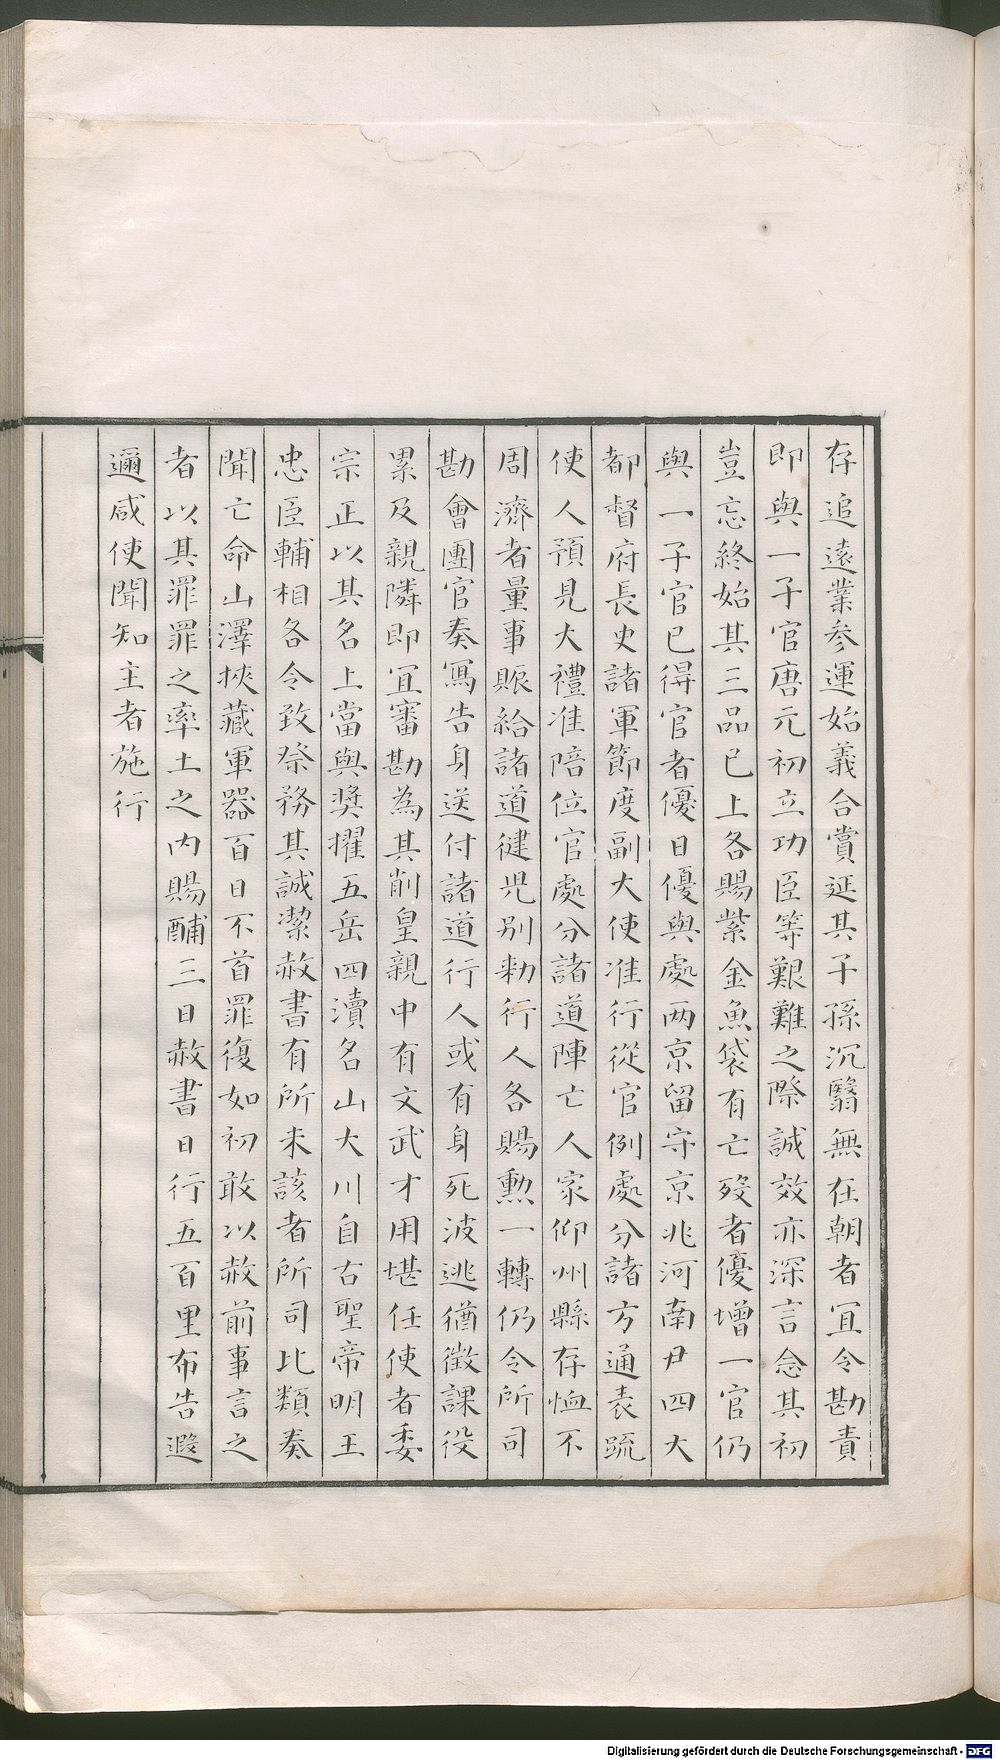 存追遠業参運始義合賞延其子孫沉翳無在朝者冝令勘責
即與一子官唐元初立功臣等艱難之際誠效亦深言念其初
豈忘終始其三品已上各賜紫金魚袋有亡歿者優增一官仍
與一子官已得官者優日優與處两京留守京兆河南尹四大
都督府長史諸軍節度副大使准行從官例處分諸方通表䟽
使人預見大禮准陪位官處分諸道陣亡人家仰州縣存恤不
周濟者量事賑給諸道健児别勑行人各賜勲一轉仍令所司
勘會團官奏冩告身送付諸道行人或有身死波逃猶徵課役
累及親隣即冝審勘為其削皇親中有文武才用堪任使者委
宗正以其名上當與奨擢五岳四瀆名山大川自古聖帝明王
忠臣輔相各令致祭務其誠潔赦書有所未該者所司比類奏
聞亡命山澤挾藏軍器百日不首罪復如初敢以赦前事言之
者以其罪罪之率土之内賜酺三日赦書日行五百里布告遐
邇咸使聞知主者施行
Digitalisierung gefördert durch die Deutsche Forschungsgemeinschaft - DFG